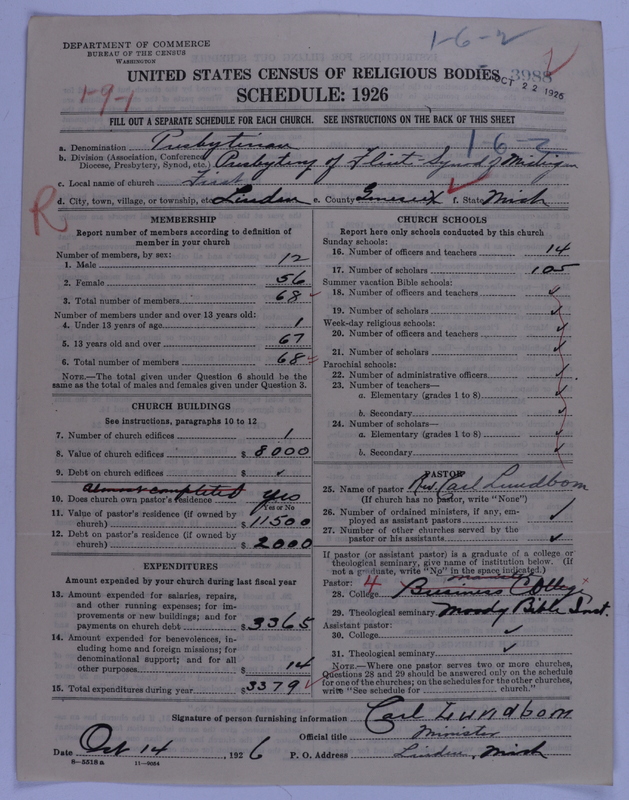 DEPARTMENT OF COMMERCE
BUREAU OF THE CENSUS
WASHINGTON
1-6-2
1-9-1
UNITED STATES CENSUS OF RELIGIOUS BODIES 3988
OCT 22 1926
SCHEDULE: 1926
FILL OUT A SEPARATE SCHEDULE FOR EACH CHURCH. SEE INSTRUCTIONS ON THE BACK OF THIS SHEET
a. Denomination Presbyterian
1-6-2
b. Division (Association, Conference, Diocese, Presbytery, Synod, etc.) Presbytery of Flint Synod of Michigan
c. Local name of church First
d. City, town, village, or township, etc. Linden e. County Genesee f. State Mich
R
MEMBERSHIP
Report number of members according to definition of
member in your church
Number of members, by sex:
1. Male 12
2. Female 56
3. Total number of members 68
Number of members under and over 13 years old:
4. Under 13 years of age 1
5. 13 years old and over 67
6. Total number of members 68
NOTE.—The total given under Question 6 should be the
same as the total of males and females given under Question 3.
CHURCH BUILDINGS
See instructions, paragraphs 10 to 12
7. Number of church edifices 1
8. Value of church edifices $ 8000
9. Debt on church edifices $ ✓
Almost completed
10. Does church own pastor's residence yes
Yes or No
11. Value of pastor's residence (if owned by
church) $ 11500
12. Debt on pastor's residence (if owned by
church) $ 2000
EXPENDITURES
Amount expended by your church during last fiscal year
13. Amount expended for salaries, repairs,
and other running expenses; for im-
provements or new buildings; and for
payments on church debt $ 3365
14. Amount expended for benevolences, in-
cluding home and foreign missions; for
denominational support; and for all
other purposes $ 14
15. Total expenditures during year $ 3379
CHURCH SCHOOLS
Report here only schools conducted by this church
Sunday schools:
16. Number of officers and teachers 14
17. Number of scholars 105
Summer vacation Bible schools:
18. Number of officers and teachers ✓
19. Number of scholars ✓
Week-day religious schools:
20. Number of officers and teachers ✓
21. Number of scholars ✓
Parochial schools:
22. Number of administrative officers ✓
23. Number of teachers—
a. Elementary (grades 1 to 8) ✓
b. Secondary ✓
24. Number of scholars—
a. Elementary (grades 1 to 8) ✓
b. Secondary ✓
PASTOR
25. Name of pastor Rev. Carl Lundbom
(If church has no pastor, write "None")
26. Number of ordained ministers, if any, em-
ployed as assistant pastors ✓
27. Number of other churches served by the
pastor or his assistants ✓
If pastor (or assistant pastor) is a graduate of a college or
theological seminary, give name of institution below. (If
not a graduate, write "No" in the space indicated.)
Pastor: 4
28. College Business College x
29. Theological seminary Moody Bible Inst.
Assistant pastor:
30. College ✓
31. Theological seminary ✓
NOTE.—Where one pastor serves two or more churches,
Questions 28 and 29 should be answered only on the schedule
for one of the churches; on the schedules for the other churches,
write "See schedule for church."
Signature of person furnishing information Carl Lundbom
Official title Minister
Date Oct 14, 1926 P. O. Address Linden, Mich
8—5518 a 11—902A